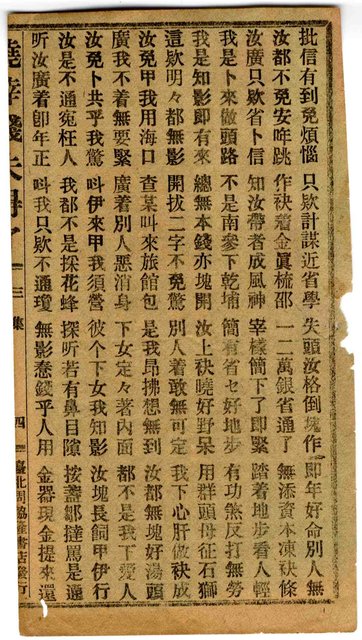 批信有到免煩惱　只欵計謀近省學　失頭汝格倒塊作　即年好命別人無
汝都不免安哖跳　作袂着金真梳邵　一二萬銀省通了　無添資本凍袂條
汝廣只欵省卜信　知汝帶者成風神　宰樣簡下了即緊　踏着地步看人輕
我是卜來做頭路　不是南參下乾埔　簡有省乜好地步　有功煞反打無勞
我是知影即有來　總無本錢亦塊開　汝上袂曉好野呆　用群頭母征石獅
這欵明々都無影　開拔二字不免驚　別人着敢無可定　我下心肝做袂成
汝免甲我用海口　查某叫來旅館包　是我昂拂想無到　汝都無塊好湯頭
廣我不着無要緊　廣着別人惡消身　下女定々著內面　都不是我下愛人
汝免卜共乎我驚　叫伊來甲我須營　彼个下女我知影　汝塊長飼甲伊行
汝是不通寃枉人　我都不是採花蜂　探听若有鼻目隙　按盞鄒撻罵是通
听汝廣着卽年正　叫我只欵不通瓊　無影惷錢乎人用　金器現金提來還
僥倖錢失　　三集　四　臺北周協隆書店發行